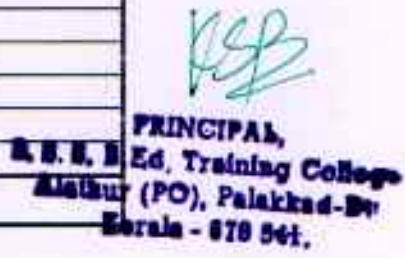 PRINCIPAL,
B.Ed. Training College
Alathur (PO), Palakkad-Dt
Kerala - 678 541.